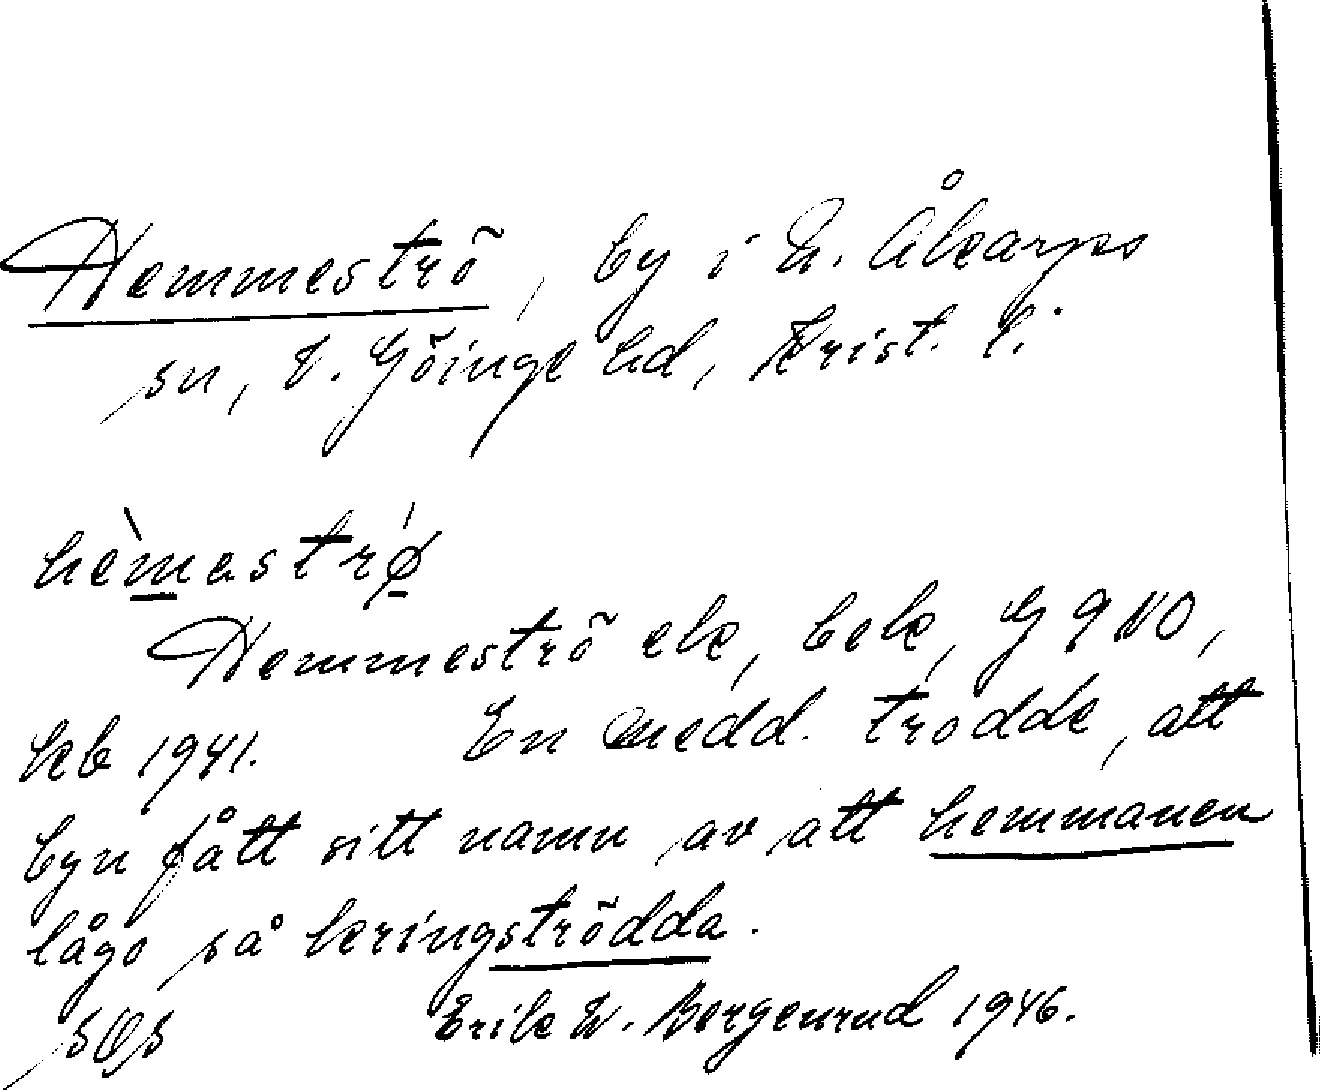 Hemmeströ, by i N. Åkarps
sn, V. Göinge hd, Krist. l.
hèmestrǿ
Hemmeströ ek, bek, G 9 NO,
kb 1941. En medd. trodde, att
byn fått sitt namn av att hemmanen
lågo så kringströdda.
SOS Erik W. Borgenrud 1946.